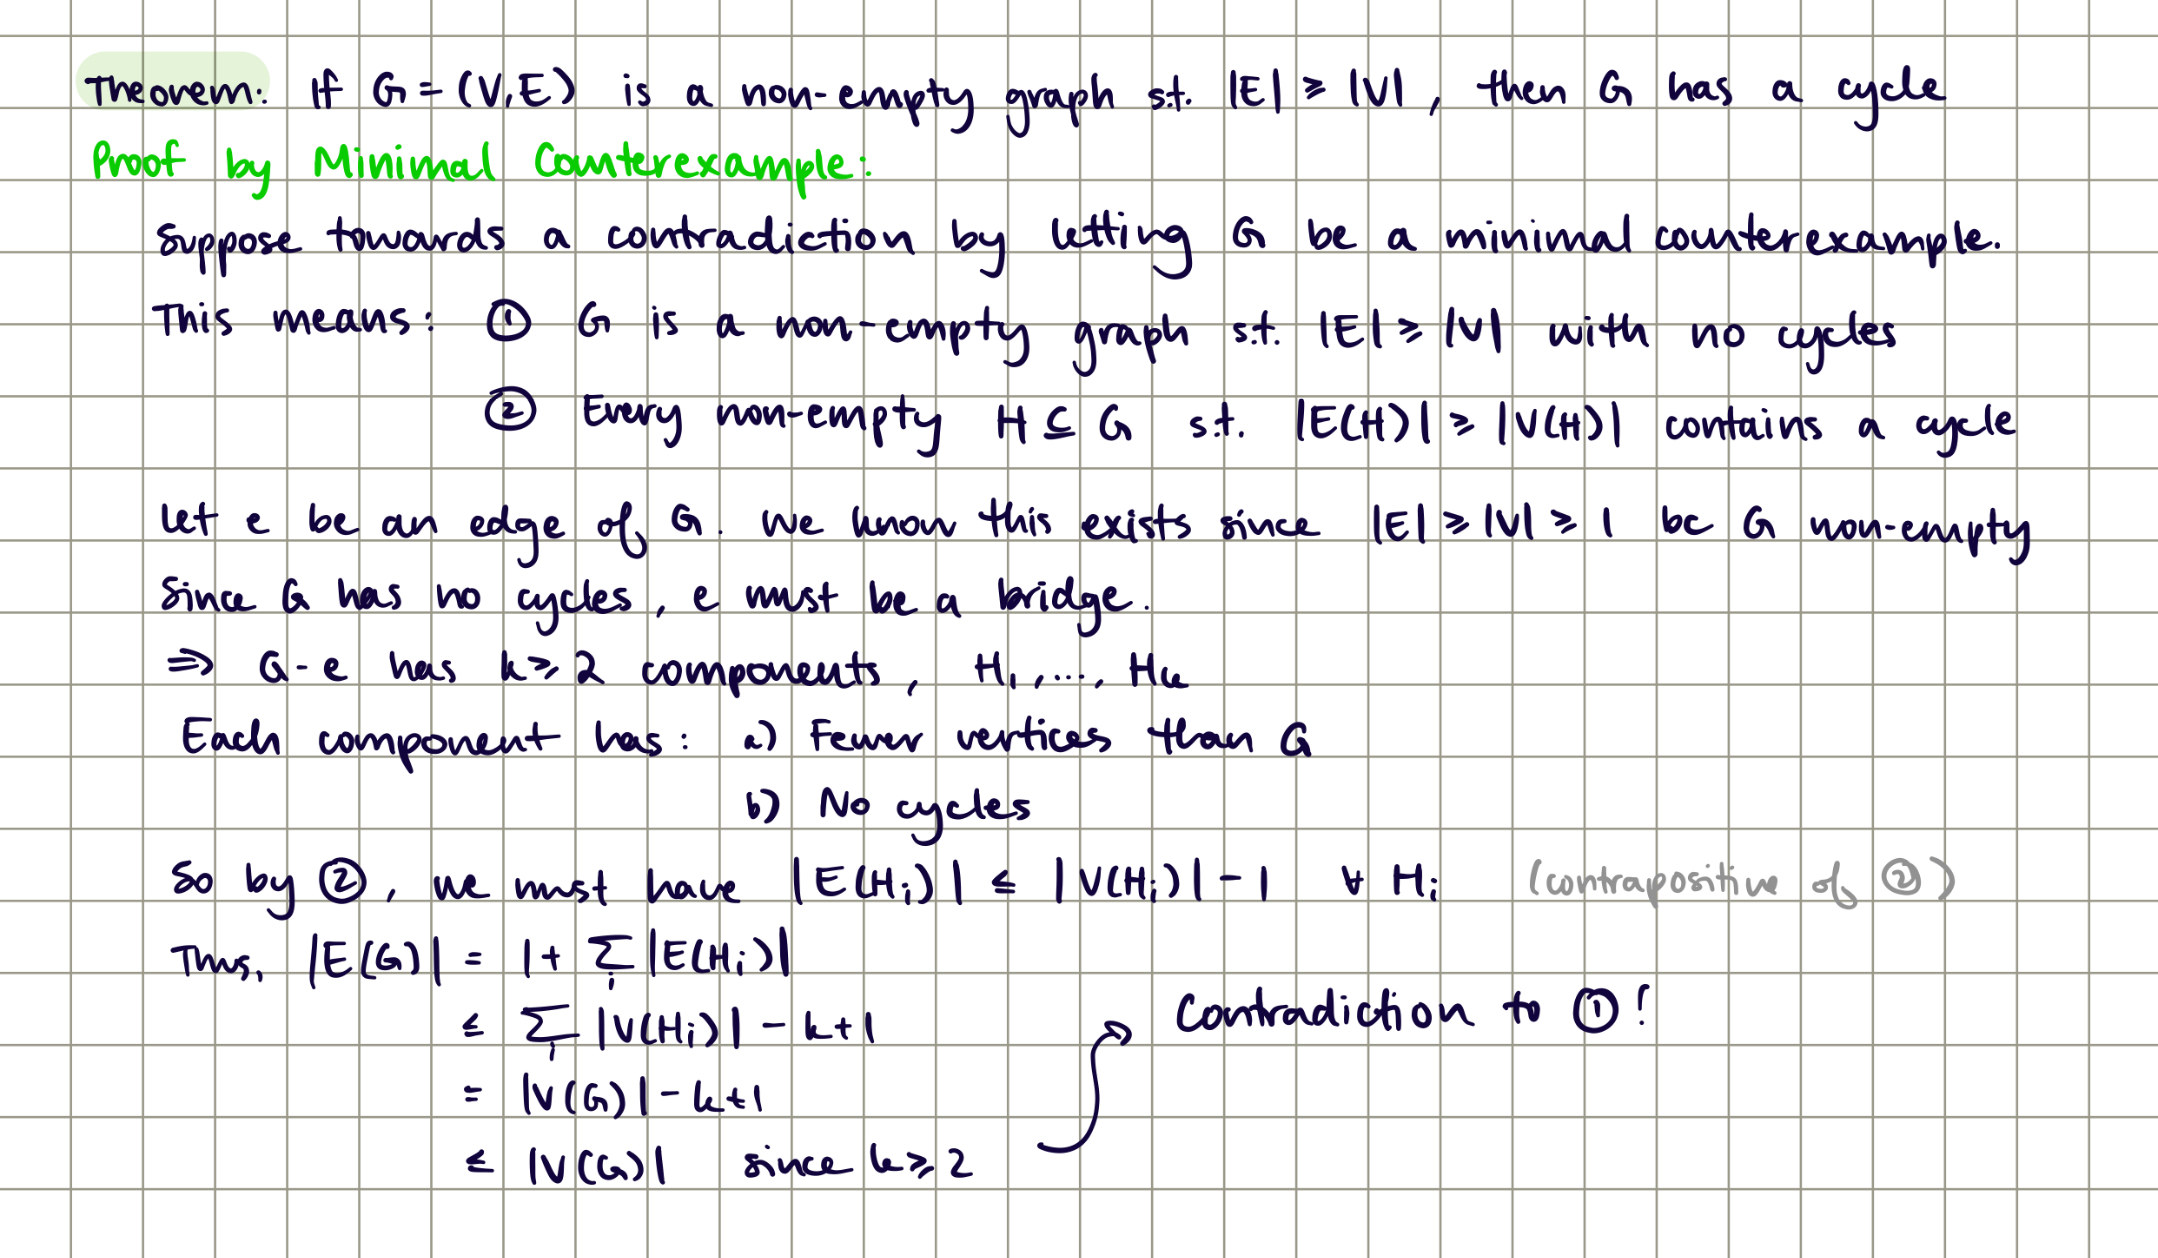 Theorem: If G = (V, E) is a non-empty graph s.t. |E| ≥ |V|, then G has a cycle
Proof by Minimal Counterexample:
Suppose towards a contradiction by letting G be a minimal counterexample.
This means: ① G is a non-empty graph s.t. |E| ≥ |V| with no cycles
② Every non-empty H ⊆ G s.t. |E(H)| ≥ |V(H)| contains a cycle
Let e be an edge of G. We know this exists since |E| ≥ |V| ≥ 1 bc G non-empty
Since G has no cycles, e must be a bridge.
⇒ G - e has k ≥ 2 components, H₁, ..., Hₖ
Each component has: a) Fewer vertices than G
b) No cycles
So by ②, we must have |E(Hᵢ)| ≤ |V(Hᵢ)| - 1 ∀ Hᵢ (contrapositive of ②)
Thus, |E(G)| = 1 + ∑ᵢ |E(Hᵢ)|
≤ ∑ᵢ |V(Hᵢ)| - k + 1
= |V(G)| - k + 1
≤ |V(G)| since k ≥ 2
Contradiction to ①!